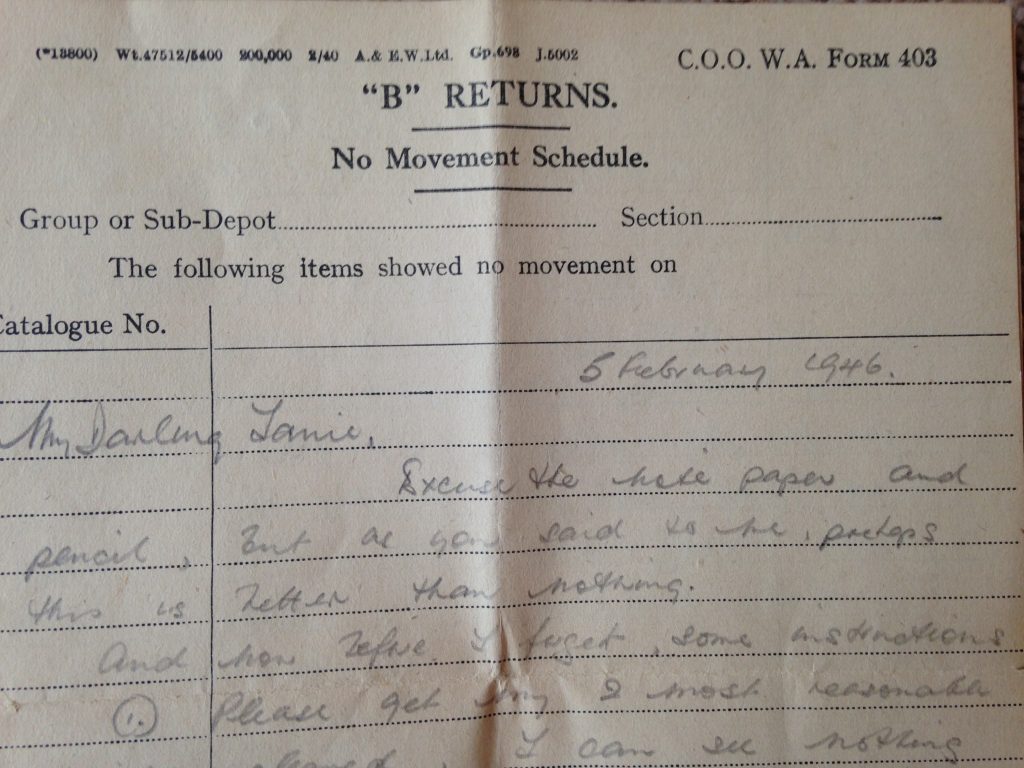 (*13800) Wt.47512/5400 200,000 2/40 A.& E.W.Ltd. Gp.698 J.5002
C.O.O. W.A. FORM 403
"B" RETURNS.
No Movement Schedule.
Group or Sub-Depot Section
The following items showed no movement on
Catalogue No.
5 February 1946.
My Darling
Excuse the note paper and
pencil, but as you said to me, perhaps
this is better than nothing.
And now before I forget, some instructions
1. Please get my 2 most reasonable
I can see nothing